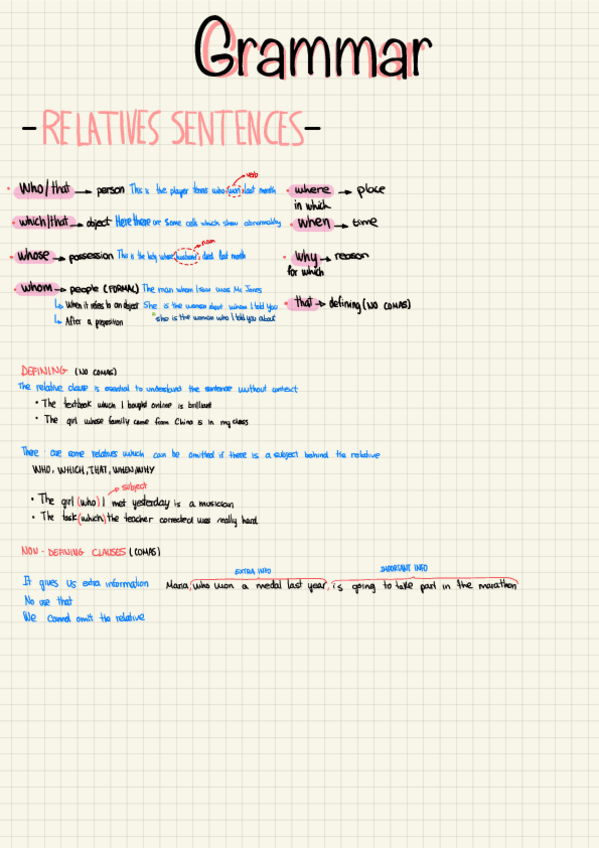 Grammar
- RELATIVES SENTENCES -
• Who/that → person This is the player tennis who won last month
verb
• which/that → object Here there are some cells which show abnormality
• whose → possession This is the boy whose husband died last month
noun
• whom → people (FORMAL) The man whom I saw was Mr Jones
↳ When it refers to an object She is the woman about whom I told you
↳ After a preposition she is the woman who I told you about
• where → place
in which
• when → time
• why → reason
for which
• that → defining (NO COMAS)
DEFINING (NO COMAS)
The relative clause is essential to understand the sentence without context
• The textbook which I bought online is brilliant
• The girl whose family came from China is in my class
There are some relatives which can be omitted if there is a subject behind the relative
WHO, WHICH, THAT, WHEN/WHY
subject
• The girl (who) I met yesterday is a musician
• The task (which) the teacher corrected was really hard
NON-DEFINING CLAUSES (COMAS)
EXTRA INFO IMPORTANT INFO
It gives us extra information Maria, who won a medal last year, is going to take part in the marathon
No use that
We cannot omit the relative